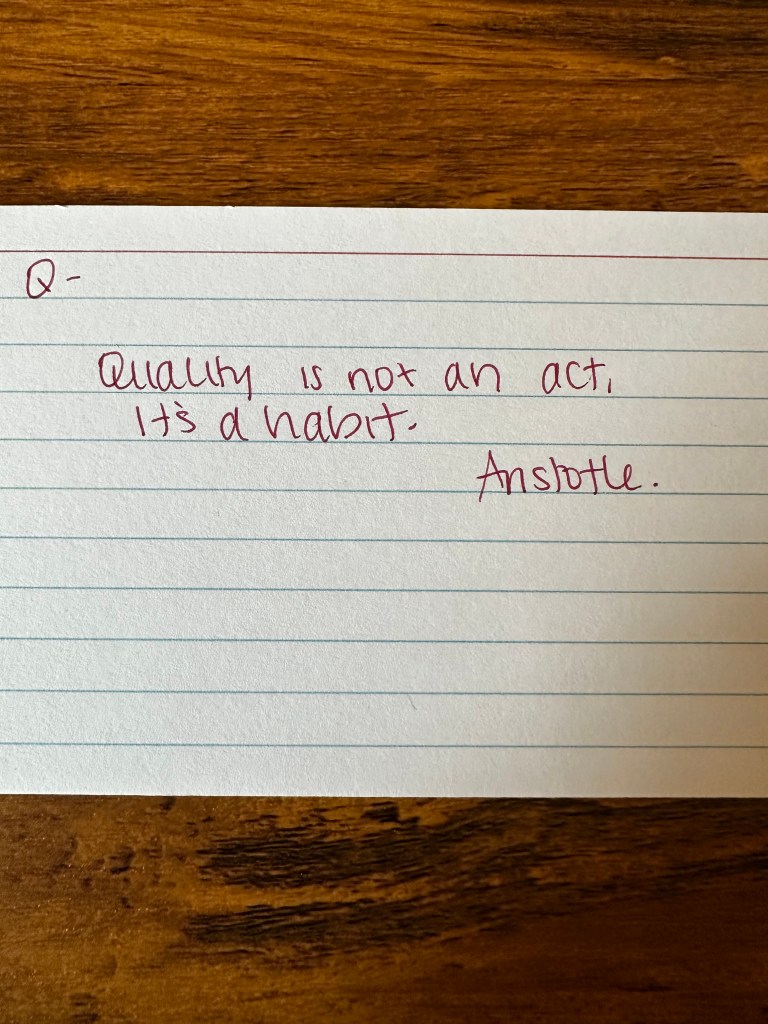 Q-
Quality is not an act,
It's a habit.
Aristotle.